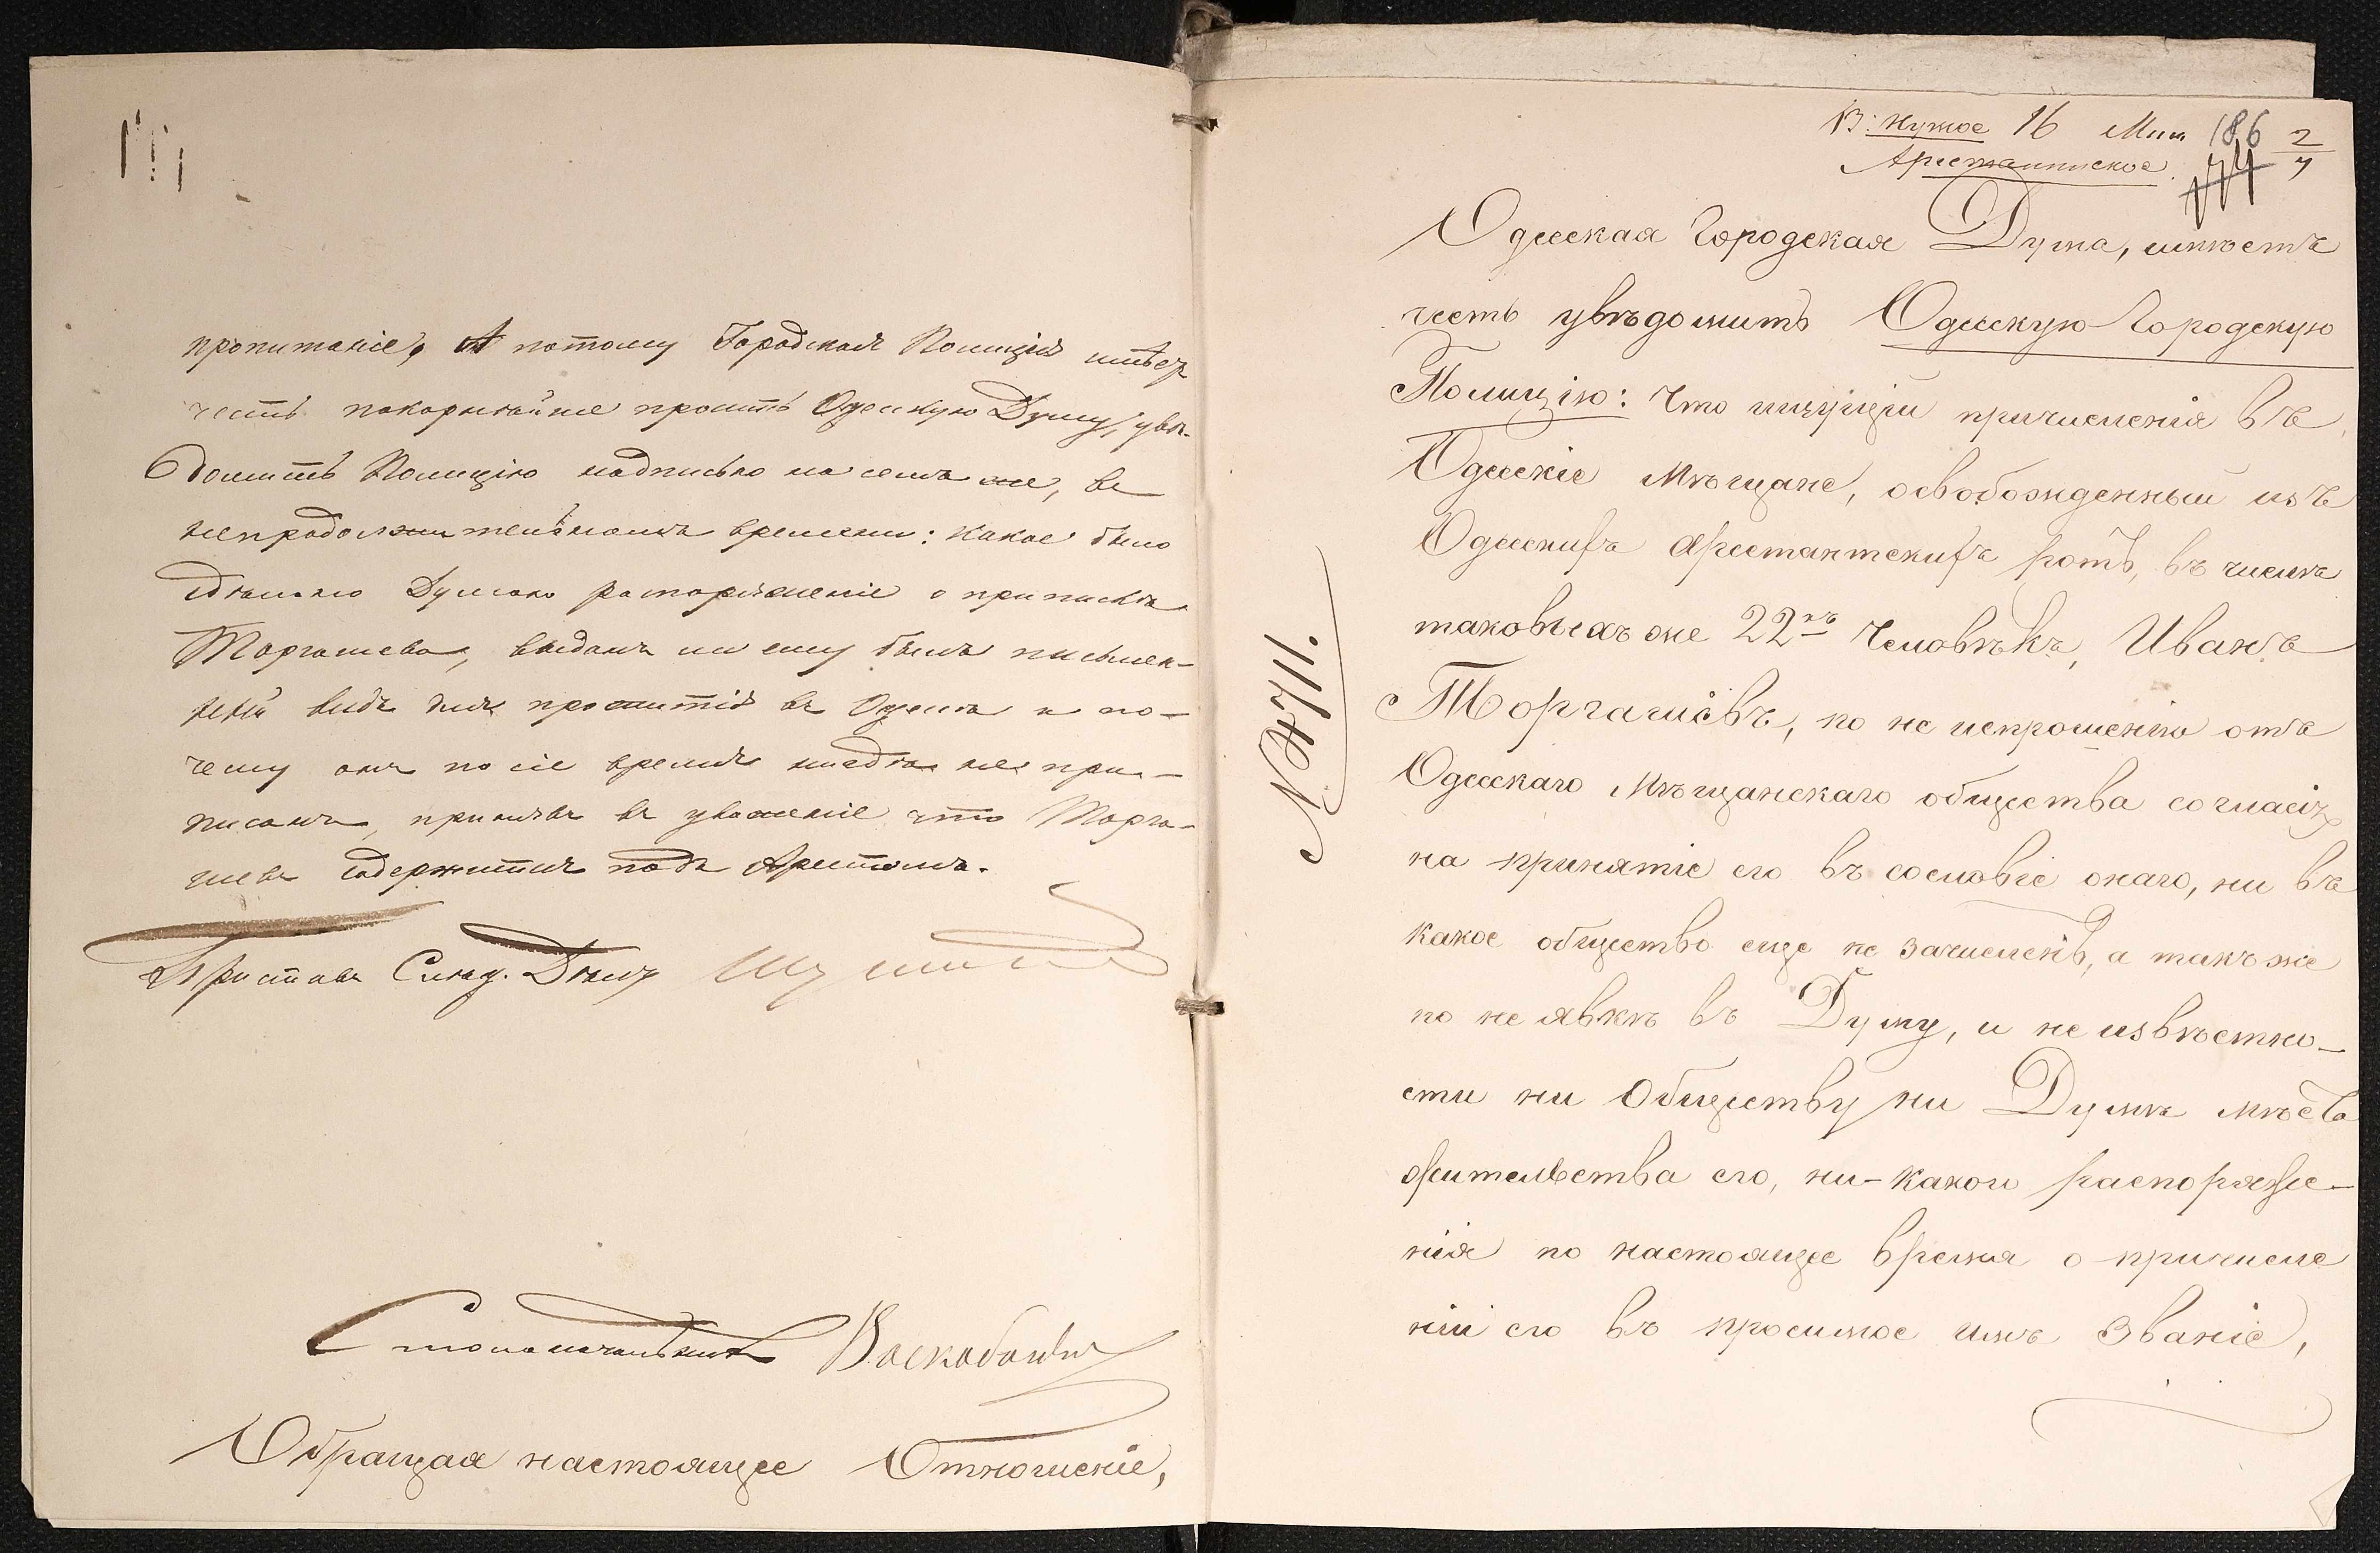 пропитаніе, А потому Городская Полиція имѣетъ
честь покорнѣйше просить Одесскую Думу, увѣ-
домить Полицію надписью на семъ же, въ
непродолжительномъ времени: какое было
сдѣлано Думою распоряженіе о припискѣ
Торгашева, выданъ ли ему былъ письмен-
ный видъ для прожитія въ Одессѣ и по-
чему онъ по сіе время нигдѣ не при-
писанъ, принявъ въ уваженіе что Торга-
шевъ содержится подъ Арестомъ.
Приставъ Слѣд. Дѣлъ
Столоначальникъ
Обращая настоящее Отношеніе,
В: нужное 16 Мая 1862
Арестантское. 174 7
Одесская Городская Дума, имѣетъ
честь увѣдомить Одесскую Городскую
Полицію: Что ищущій причисленія въ
Одесскіе Мѣщане, освобожденный изъ
Одесскихъ Арестантскихъ ротъ, въ числѣ
таковыхъ же 22хъ Человѣкъ, Иванъ
Торгашёвъ, по не испрошенію отъ
Одесскаго Мѣщанскаго общества согласія
на принятіе его въ сословіе онаго, ни въ
какое общество еще не зачисленъ, а такъ же
по не явкѣ въ Думу, и не извѣстно-
сти ни Обществу ни Думѣ мѣста
жительства его, ни-какого распоряже-
нія по настоящее время о причисле
ніи его въ просимое имъ званіе,
№ 4711.